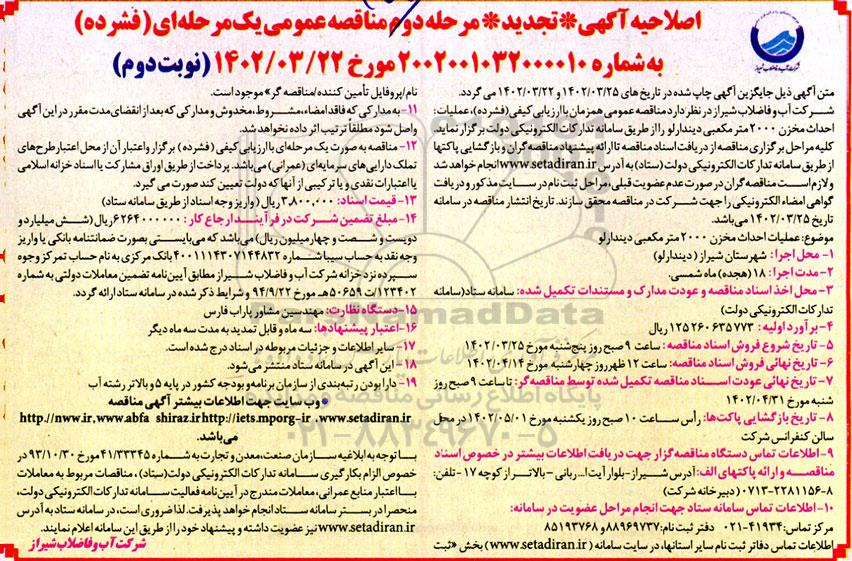 اصلاحیه آگهی *تجدید* مرحله دوم مناقصه عمومی یک مرحله ای (فشرده)
به شماره ۲۰۰۲۰۰۱۰۳۲۰۰۰۰۱۰ مورخ ۱۴۰۲/۰۳/۲۲ (نوبت دوم)
شرکت آب و فاضلاب شیراز
متن آگهی ذیل جایگزین آگهی چاپ شده در تاریخ های ۱۴۰۲/۰۳/۲۵ و ۱۴۰۲/۰۳/۲۲ می گردد.
شرکت آب و فاضلاب شیراز در نظر دارد مناقصه عمومی همزمان با ارزیابی کیفی (فشرده)، عملیات:
احداث مخزن ۲۰۰۰ متر مکعبی دیندارلو را از طریق سامانه تدارکات الکترونیکی دولت برگزار نماید.
کلیه مراحل برگزاری مناقصه از دریافت اسناد مناقصه تا ارائه پیشنهاد مناقصه گران و بازگشایی پاکتها
از طریق سامانه تدارکات الکترونیکی دولت (ستاد) به آدرس www.setadiran.ir انجام خواهد شد
و لازم است مناقصه گران در صورت عدم عضویت قبلی، مراحل ثبت نام در سایت مذکور و دریافت
گواهی امضاء الکترونیکی را جهت شرکت در مناقصه محقق سازند. تاریخ انتشار مناقصه در سامانه
تاریخ ۱۴۰۲/۰۳/۲۵ می باشد.
موضوع: عملیات احداث مخزن ۲۰۰۰ متر مکعبی دیندارلو
۱- محل اجرا: شهرستان شیراز (دیندارلو)
۲- مدت اجرا: ۱۸ (هجده) ماه شمسی.
۳- محل اخذ اسناد مناقصه و عودت مدارک و مستندات تکمیل شده: سامانه ستاد (سامانه
تدارکات الکترونیکی دولت)
۴- برآورد اولیه: ۱۲۵۲۶۰۶۳۵۷۷۳ ریال
۵- تاریخ شروع فروش اسناد مناقصه: ساعت ۹ صبح روز پنج شنبه مورخ ۱۴۰۲/۰۳/۲۵
۶- تاریخ نهائی فروش اسناد مناقصه: ساعت ۱۲ ظهر روز چهارشنبه مورخ ۱۴۰۲/۰۴/۱۴
۷- تاریخ نهائی عودت اسناد مناقصه تکمیل شده توسط مناقصه گر: تا ساعت ۹ صبح روز
شنبه مورخ ۱۴۰۲/۰۴/۳۱
۸- تاریخ بازگشایی پاکت‌ها: رأس ساعت ۱۰ صبح روز یکشنبه مورخ ۱۴۰۲/۰۵/۰۱ در محل
سالن کنفرانس شرکت
۹- اطلاعات تماس دستگاه مناقصه گزار جهت دریافت اطلاعات بیشتر در خصوص اسناد
مناقصه و ارائه پاکتهای الف: آدرس شیراز- بلوار آیت ا... ربانی - بالاتر از کوچه ۱۷- تلفن:
۸-۰۷۱۳-۲۲۸۱۱۵۶ (دبیرخانه شرکت)
۱۰- اطلاعات تماس سامانه ستاد جهت انجام مراحل عضویت در سامانه:
مرکز تماس: ۴۱۹۳۴-۰۲۱ دفتر ثبت نام: ۸۸۹۶۹۷۳۷ و ۸۵۱۹۳۷۶۸
اطلاعات تماس دفاتر ثبت نام سایر استانها، در سایت سامانه (www.setadiran.ir) بخش «ثبت
نام/پروفایل تأمین کننده/مناقصه گر» موجود است.
۱۱- به مدارکی که فاقد امضاء، مشروط، مخدوش و مدارکی که بعد از انقضای مدت مقرر در این آگهی
واصل شود مطلقاً ترتیب اثر داده نخواهد شد.
۱۲- مناقصه به صورت یک مرحله ای با ارزیابی کیفی (فشرده) برگزار و اعتبار آن از محل اعتبار طرح های
تملک دارایی های سرمایه ای (عمرانی) می باشد. پرداخت از طریق اوراق مشارکت یا اسناد خزانه اسلامی
یا اعتبارات نقدی و یا ترکیبی از آنها که دولت تعیین کند صورت می گیرد.
۱۳- قیمت اسناد: ۳,۸۰۰,۰۰۰ ریال (واریز وجه اسناد از طریق سامانه ستاد)
۱۴- مبلغ تضمین شرکت در فرآیند ارجاع کار: ۶۲۶۴۰۰۰۰۰۰ ریال (شش میلیارد و
دویست و شصت و چهار میلیون ریال) می باشد که می‌بایستی بصورت ضمانتنامه بانکی یا واریز
وجه نقد به حساب سیبا شماره ۴۰۰۱۱۱۴۳۰۷۱۴۴۸۳۲ بانک مرکزی به نام حساب تمرکز وجوه
سپرده نزد خزانه شرکت آب و فاضلاب شیراز مطابق آیین نامه تضمین معاملات دولتی به شماره
۱۲۳۴۰۲/ت ۵۰۶۵۹ هـ مورخ ۹۴/۹/۲۲ و شرایط ذکر شده در سامانه ستاد ارائه گردد.
۱۵- دستگاه نظارت: مهندسین مشاور پاراب فارس
۱۶- اعتبار پیشنهادها: سه ماه و قابل تمدید به مدت سه ماه دیگر
۱۷- سایر اطلاعات و جزئیات مربوطه در اسناد درج شده است.
۱۸- این آگهی در سامانه ستاد منتشر می شود.
۱۹- دارا بودن رتبه بندی از سازمان برنامه و بودجه کشور در پایه ۵ و بالاتر رشته آب
* وب سایت جهت اطلاعات بیشتر آگهی مناقصه
http://nww.ir, www.abfa shiraz.ir http://iets.mporg-ir ,www.setadiran.ir
می باشد.
با توجه به ابلاغیه سازمان صنعت، معدن و تجارت به شماره ۴۱/۳۳۳۴۵ مورخ ۹۳/۱۰/۳۰ در
خصوص الزام بکارگیری سامانه تدارکات الکترونیکی دولت (ستاد)، مناقصات مربوط به معاملات
با اعتبار منابع عمرانی، معاملات مندرج در آیین نامه فعالیت سامانه تدارکات الکترونیکی دولت،
منحصراً در بستر سامانه ستاد انجام خواهد پذیرفت. لذا ضروری است، در سامانه ستاد به آدرس
www.setadiran.ir نیز عضویت داشته و پیشنهاد خود را از طریق این سامانه اعلام نمایند.
شرکت آب و فاضلاب شیراز
ParsNamadData
پایگاه اطلاع رسانی مناقصه
۰۲۱-۸۸۳۴۹۶۷۰-۵